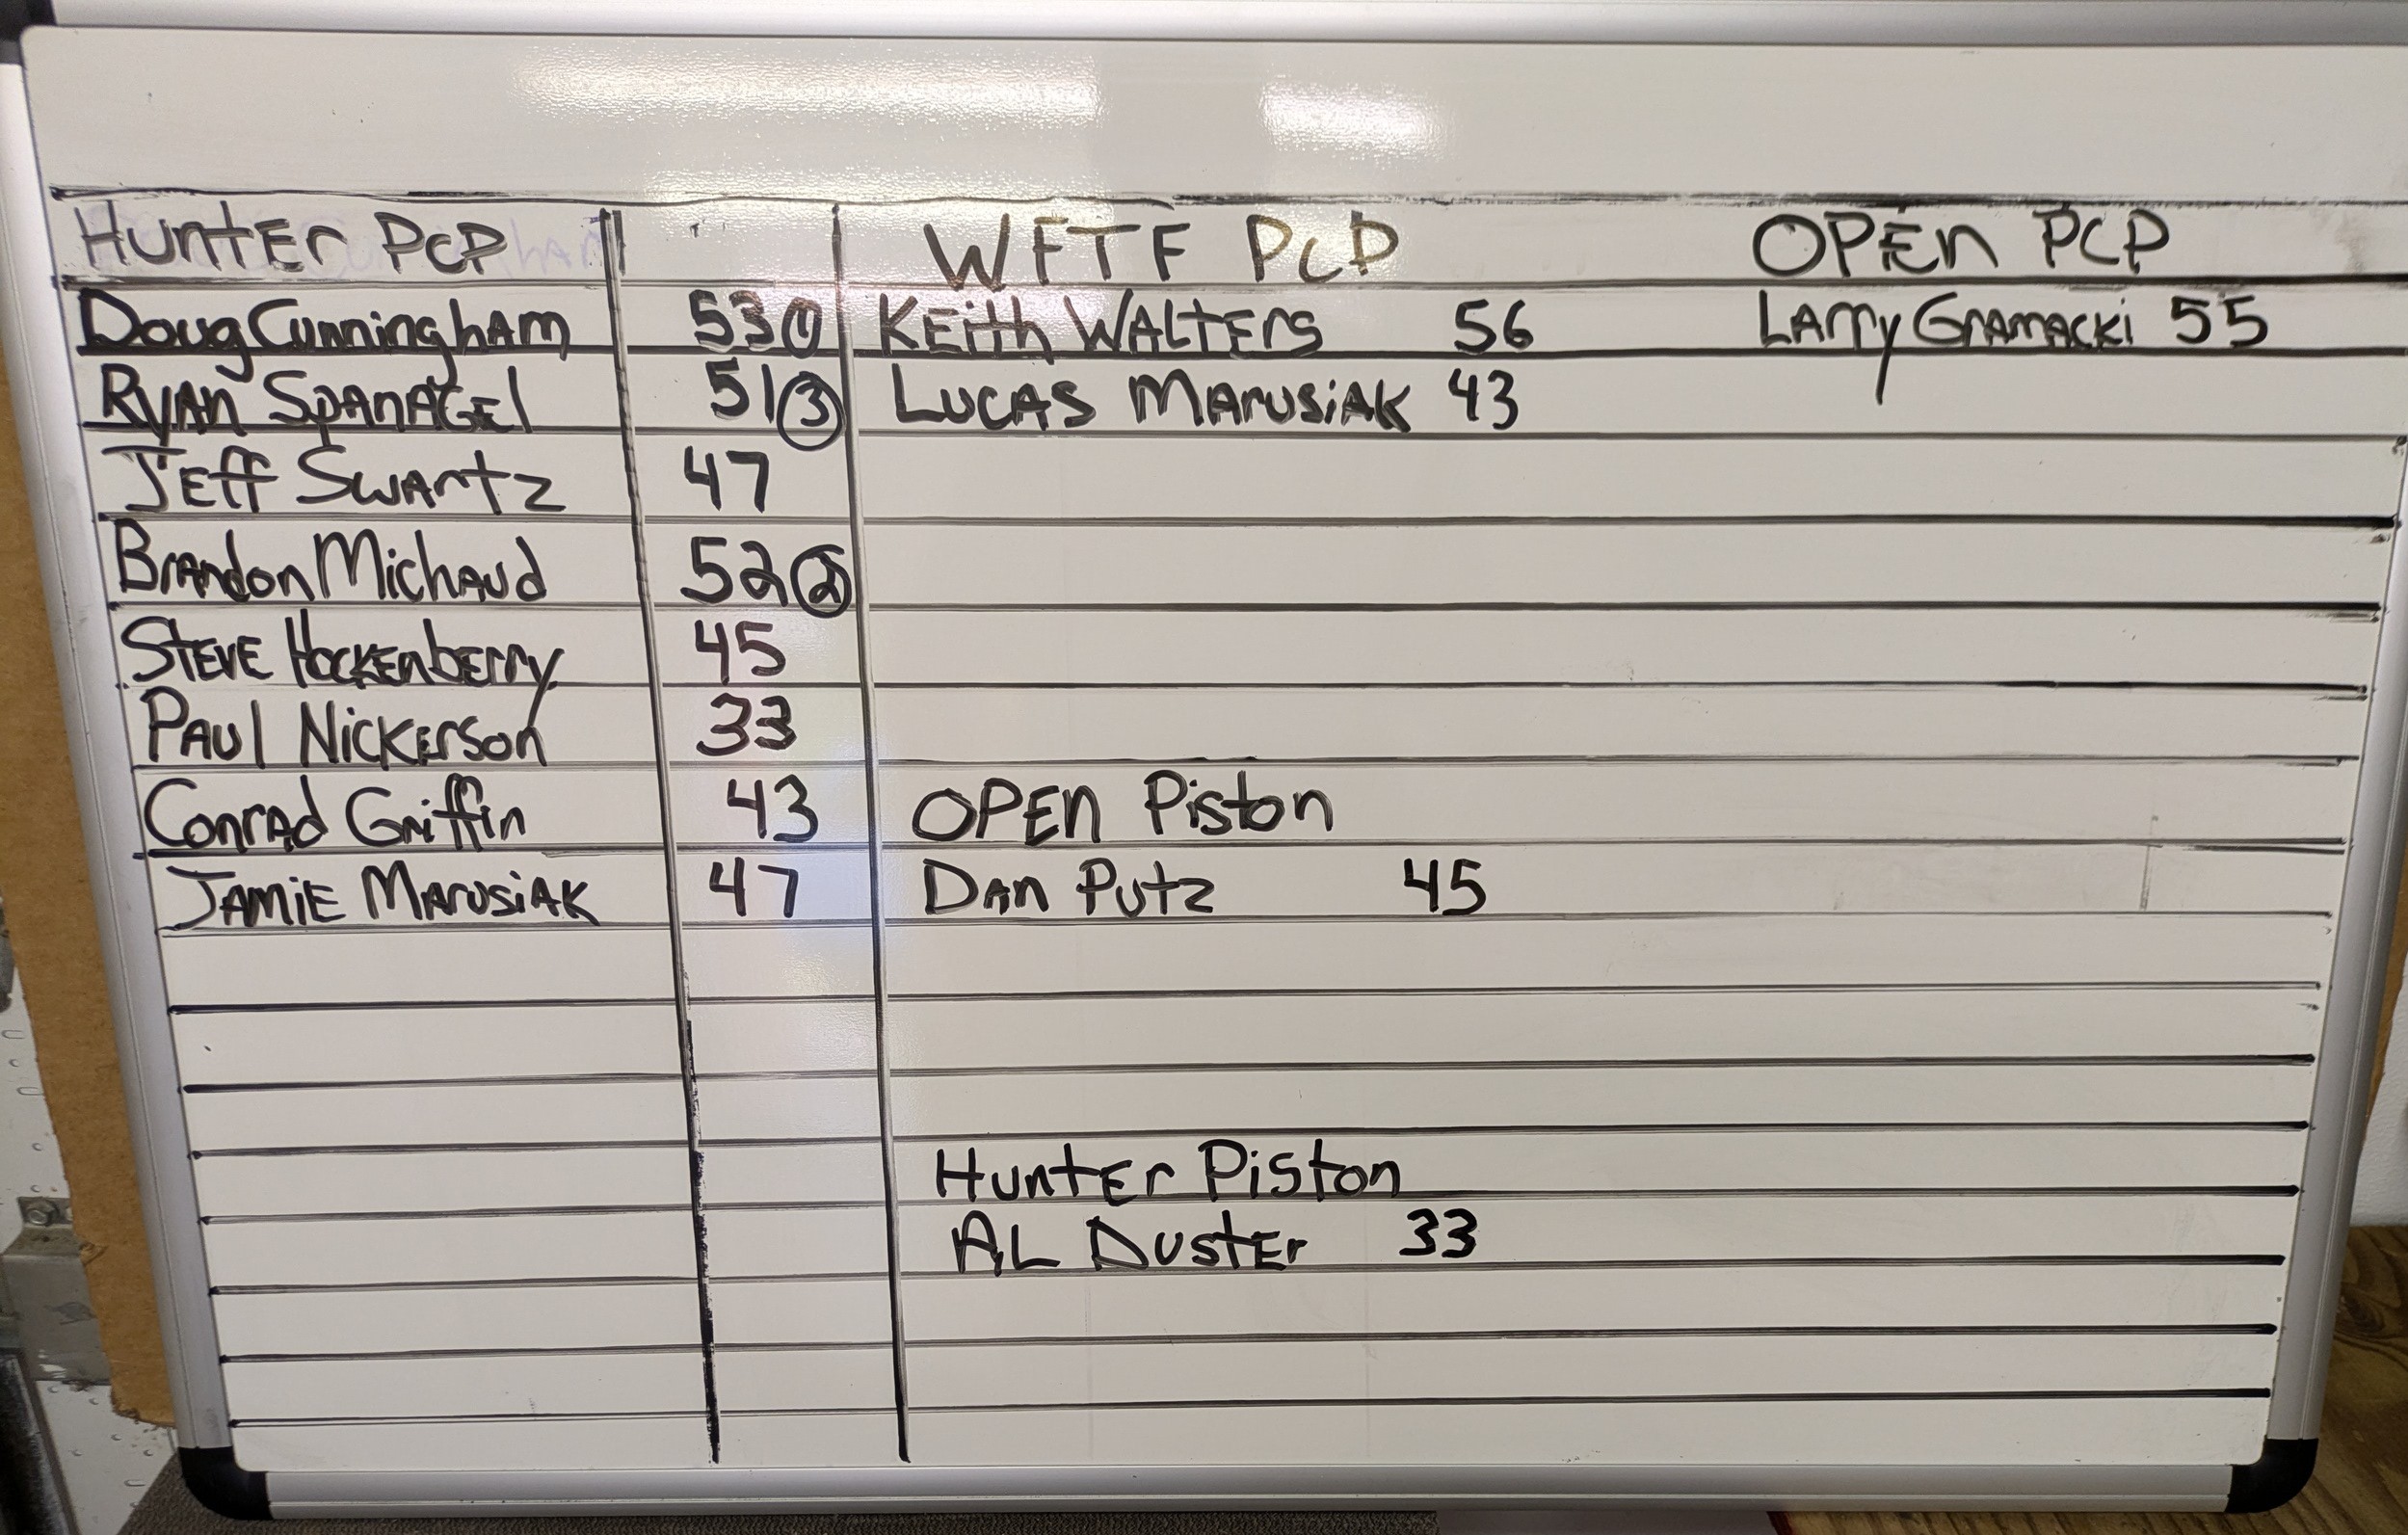 HUntEr PCP
Doug CunninghAm 53 ①
RyAn SpAnAGEl 51 ③
JEff SwArtz 47
BrAndon MichAud 52 ②
StEVE HockEnbErry 45
PAUl NickErson 33
ConrAd Griffin 43
JAMiE MArusiAK 47
WFTF PCP
KEith WALtErs 56
LUCAS MArusiAK 43
OPEn PCP
LArry GrAmAcki 55
OPEn Piston
DAn Putz 45
HuntEr Piston
AL DustEr 33